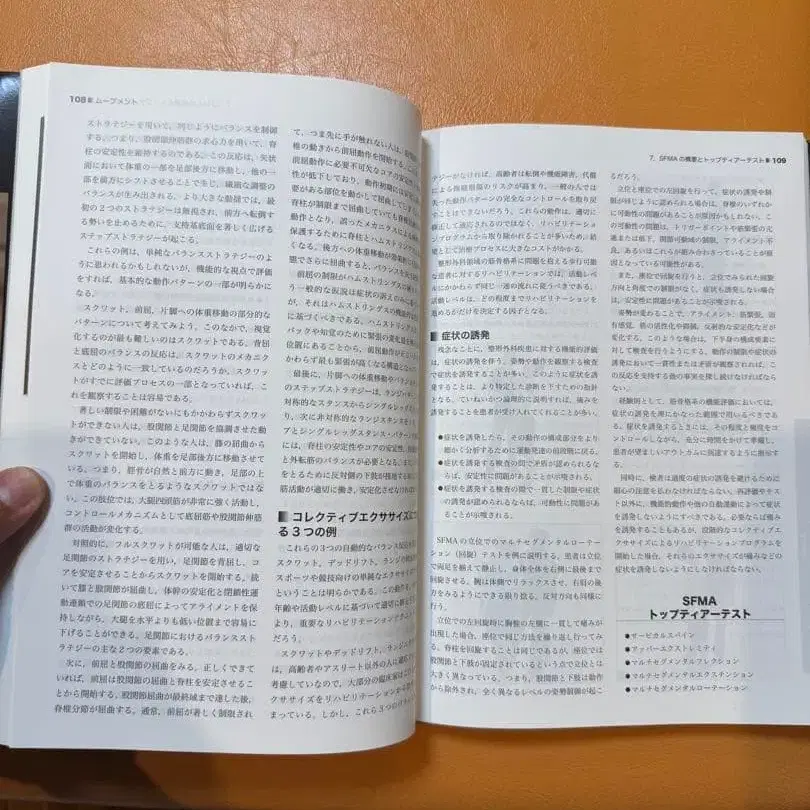 108 ムーブメント
ストラテジーを用いて、同じようにバランスを制御
する。つまり、股関節伸筋群の求心力を用いて、脊
柱の安定性を維持するのである。この反応は、矢状
面において体重の一部を足部後方に移動し、他の一
部を前方にシフトさせることで生じ、繊細な調整の
バランスが生みだされる。より大きな動揺では、最
初の2つのストラテジーは無視され、前方へ転倒す
る勢いを止めるために、支持基底面を著しく広げる
ステップストラテジーが起こる。
これらの例は、単純なバランスストラテジーのよ
うに思われるかもしれないが、機能的な視点で評価
をすれば、基本的な動作パターンの一部が明らかに
なる。
スクワット、前屈、片脚への体重移動の部分的な
パターンについて考えてみよう。このなかで、視覚
化するのが最も難しいのはスクワットである。背屈
と底屈のバランスの反応は、スクワットのメカニク
スとどのように一致しているのだろうか。スクワッ
トがすでに評価プロセスの一部となっていれば、こ
れを観察することは容易である。
著しい制限や困難がないにもかかわらずスクワッ
トができない人は、股関節と足関節を協調させた動
きができていない。このような人は、膝の屈曲から
スクワットを開始し、体重を足部後方に移動させて
いる。つまり、脛骨が自然と前方に動き、足部の上
で体重のバランスをとるようなスクワットではな
い。この肢位では、大腿四頭筋が非常に強く活動し、
コントロールメカニズムとして底屈筋や股関節伸筋
群の活動が変化する。
対照的に、フルスクワットが可能な人は、適切な
足関節のストラテジーを用い、足関節を背屈し、コ
アを安定させることからスクワットを開始する。続
いて膝と股関節が屈曲し、体幹の安定化と閉鎖性運
動連鎖での足関節の底屈によってアライメントを保
持しながら、大腿を水平よりも低い位置まで容易に
下げることができる。足関節におけるバランススト
ラテジーの主な2つの要素である。
次に、前屈と股関節の屈曲をみる。正しくできて
いれば、前屈は股関節の屈曲と脊柱を安定させるこ
とから開始する。股関節屈曲が最終域まで達した後、
脊椎分節が屈曲する。通常、前屈が著しく制限され
て、つま先に手が触れない人は、
椎の動きから前屈動作を開始する。
前屈動作に必要不可欠なコアの安定
性が低下しており、動作初期には
要がある部位を動かして動作して
脊柱が制限まで屈曲していても脊椎
動作となり、誤ったメカニクスによる
保護するために脊柱とハムストリング
くなる。後方への体重移動が
態でさらに屈曲すると、バランスを
前屈の制限がハムストリングス
う一般的な仮説は症状の訴えのみに
が、それはハムストリングスの機能
に基づくべきである。ハムストリング
バックや知覚のために緊張の変化
位置にあることから、前屈動作が
かわらず最も緊張が高くなる構造と
最後に、片脚への体重移動やバランス
のステップストラテジーは、ランジ
対称的なスタンスからシングルレッグ
り、次に非対称的なランジスタンス
アとシングルレッグスタンス・パターン
は、脊柱の安定性やコアの安定性、
と外転筋のバランスが必要となる。
をとるために反対側の下肢が推進する
筋活動が適切に働き、安定化させなければ
コレクティブエクササイズに
る3つの例
これらの3つの自動的なバランス反応
スクワット、デッドリフト、ランジの
スポーツや競技向けの単純なエクササイズ
ということは明らかである。この動
年齢や活動レベルに基づいて適切に修正
より、重要なリハビリテーションに
だろう。
スクワットやデッドリフト、ランジ
は、高齢者やアスリート以外の人は適
考慮しているので、大部分の臨床家は
クササイズをリハビリテーションから
まっている。しかし、これら3つの
7. SFMAの概要とトップティアーテスト 109
テジーがなければ、高齢者は転倒や機能障害、代償
による機能制限のリスクが高まり、一般の人では
失った動作パターンの完全なコントロールを取り戻
すことはできないだろう。これらの動作は、適切に
修正して適応されるのではなく、リハビリテーショ
ンプログラムから取り除かれることが多いため、結
果として治療プロセスに大きなコストがかかる。
整形外科領域の筋骨格系に問題を抱える歩行可能
な患者に対するリハビリテーションでは、活動レベ
ルにかかわらず同じ一連の流れに従うべきである。
活動レベルは、どの程度までリハビリテーションを
進めるかだけを決定する因子となる。
症状の誘発
残念なことに、整形外科疾患に対する機能的評価
は、症状の誘発を伴う。姿勢や動作を観察する検査
で症状を誘発することが多い。このように症状を誘
発することは、より特定した診断を下すための指針
となる。ていねいかつ論理的に説明すれば、痛みを
誘発することを患者が受け入れてくれることが多い。
●症状を誘発したら、その動作の構成部分をより
細かく分析するために運動発達の前段階に戻る。
●症状を誘発する検査の間で矛盾が認められるな
らば、安定性に問題があることが示唆される。
●症状を誘発する検査の間で一貫した制限や症状
の誘発が認められるならば、可動性に問題があ
ることが示唆される。
SFMAの立位でのマルチセグメンタルローテー
ション（回旋）テストを例に説明する。患者は立位
で両足を揃えて静止し、身体全体を右側に最後まで
回旋させる。腕は体側でリラックスさせ、右肩の後
方をみるようにできる限り捻る。反対方向も同様に
行う。
立位での左回旋時に胸椎の左側に一貫して痛みが
出現した場合、座位で同じ方法を繰り返し行ってみ
る。脊柱を回旋することは同じであるが、座位では
股関節と下肢が固定されているという点で立位とは
大きく異なっている。つまり、股関節と下肢は動作
から除外され、全く異なるレベルの姿勢制御が起こ
るだろう。
立位と座位での左回旋を行って、症状の誘発や制
限が同じように認められる場合は、脊椎のいずれか
に可動性の問題があることが原因かもしれない。こ
の可動性の問題は、トリガーポイントや筋緊張の亢
進または低下、関節可動域の制限、アライメント不
良、あるいはこれらが組み合わさっていることが原
因となっている可能性がある。
また、座位で回旋を行うと、立位でみられた回旋
方向と角度での制限がなく、症状も誘発しない場合
は、安定性に問題があることが示唆される。
姿勢が変わることで、アライメント、筋緊張、固
有感覚、筋の活性化や抑制、反射的な安定化などが
変化する。このような場合は、下半身の構成要素に
対して検査を行うようにする。動作の制限や症状の
誘発において一貫性または矛盾が観察されれば、こ
の反応を支持する他の事実を探し続けなければなら
ない。
経験則として、筋骨格系の機能評価においては、
症状の誘発を理にかなった範囲で用いるべきであ
る。症状を誘発するときには、その程度と頻度をコ
ントロールしながら、充分に時間をかけて準備し、
患者が望ましいアウトカムに到達するように熟考す
る。
同時に、検者は過度の症状の誘発を避けるために
細心の注意を払わなければならない。再評価やテス
ト以外に、機能的動作や他の自動運動によって症状
を誘発しないようにすべきである。必要ならば痛み
を誘発することもあるが、段階的なコレクティブエ
クササイズによるリハビリテーションプログラムを
開始した場合、それらのエクササイズが痛みなどの
症状を誘発しないようにしなければならない。
SFMA
トップティアーテスト
●サービカルスパイン
●アッパーエクストレミティ
●マルチセグメンタルフレクション
●マルチセグメンタルエクステンション
●マルチセグメンタルローテーション